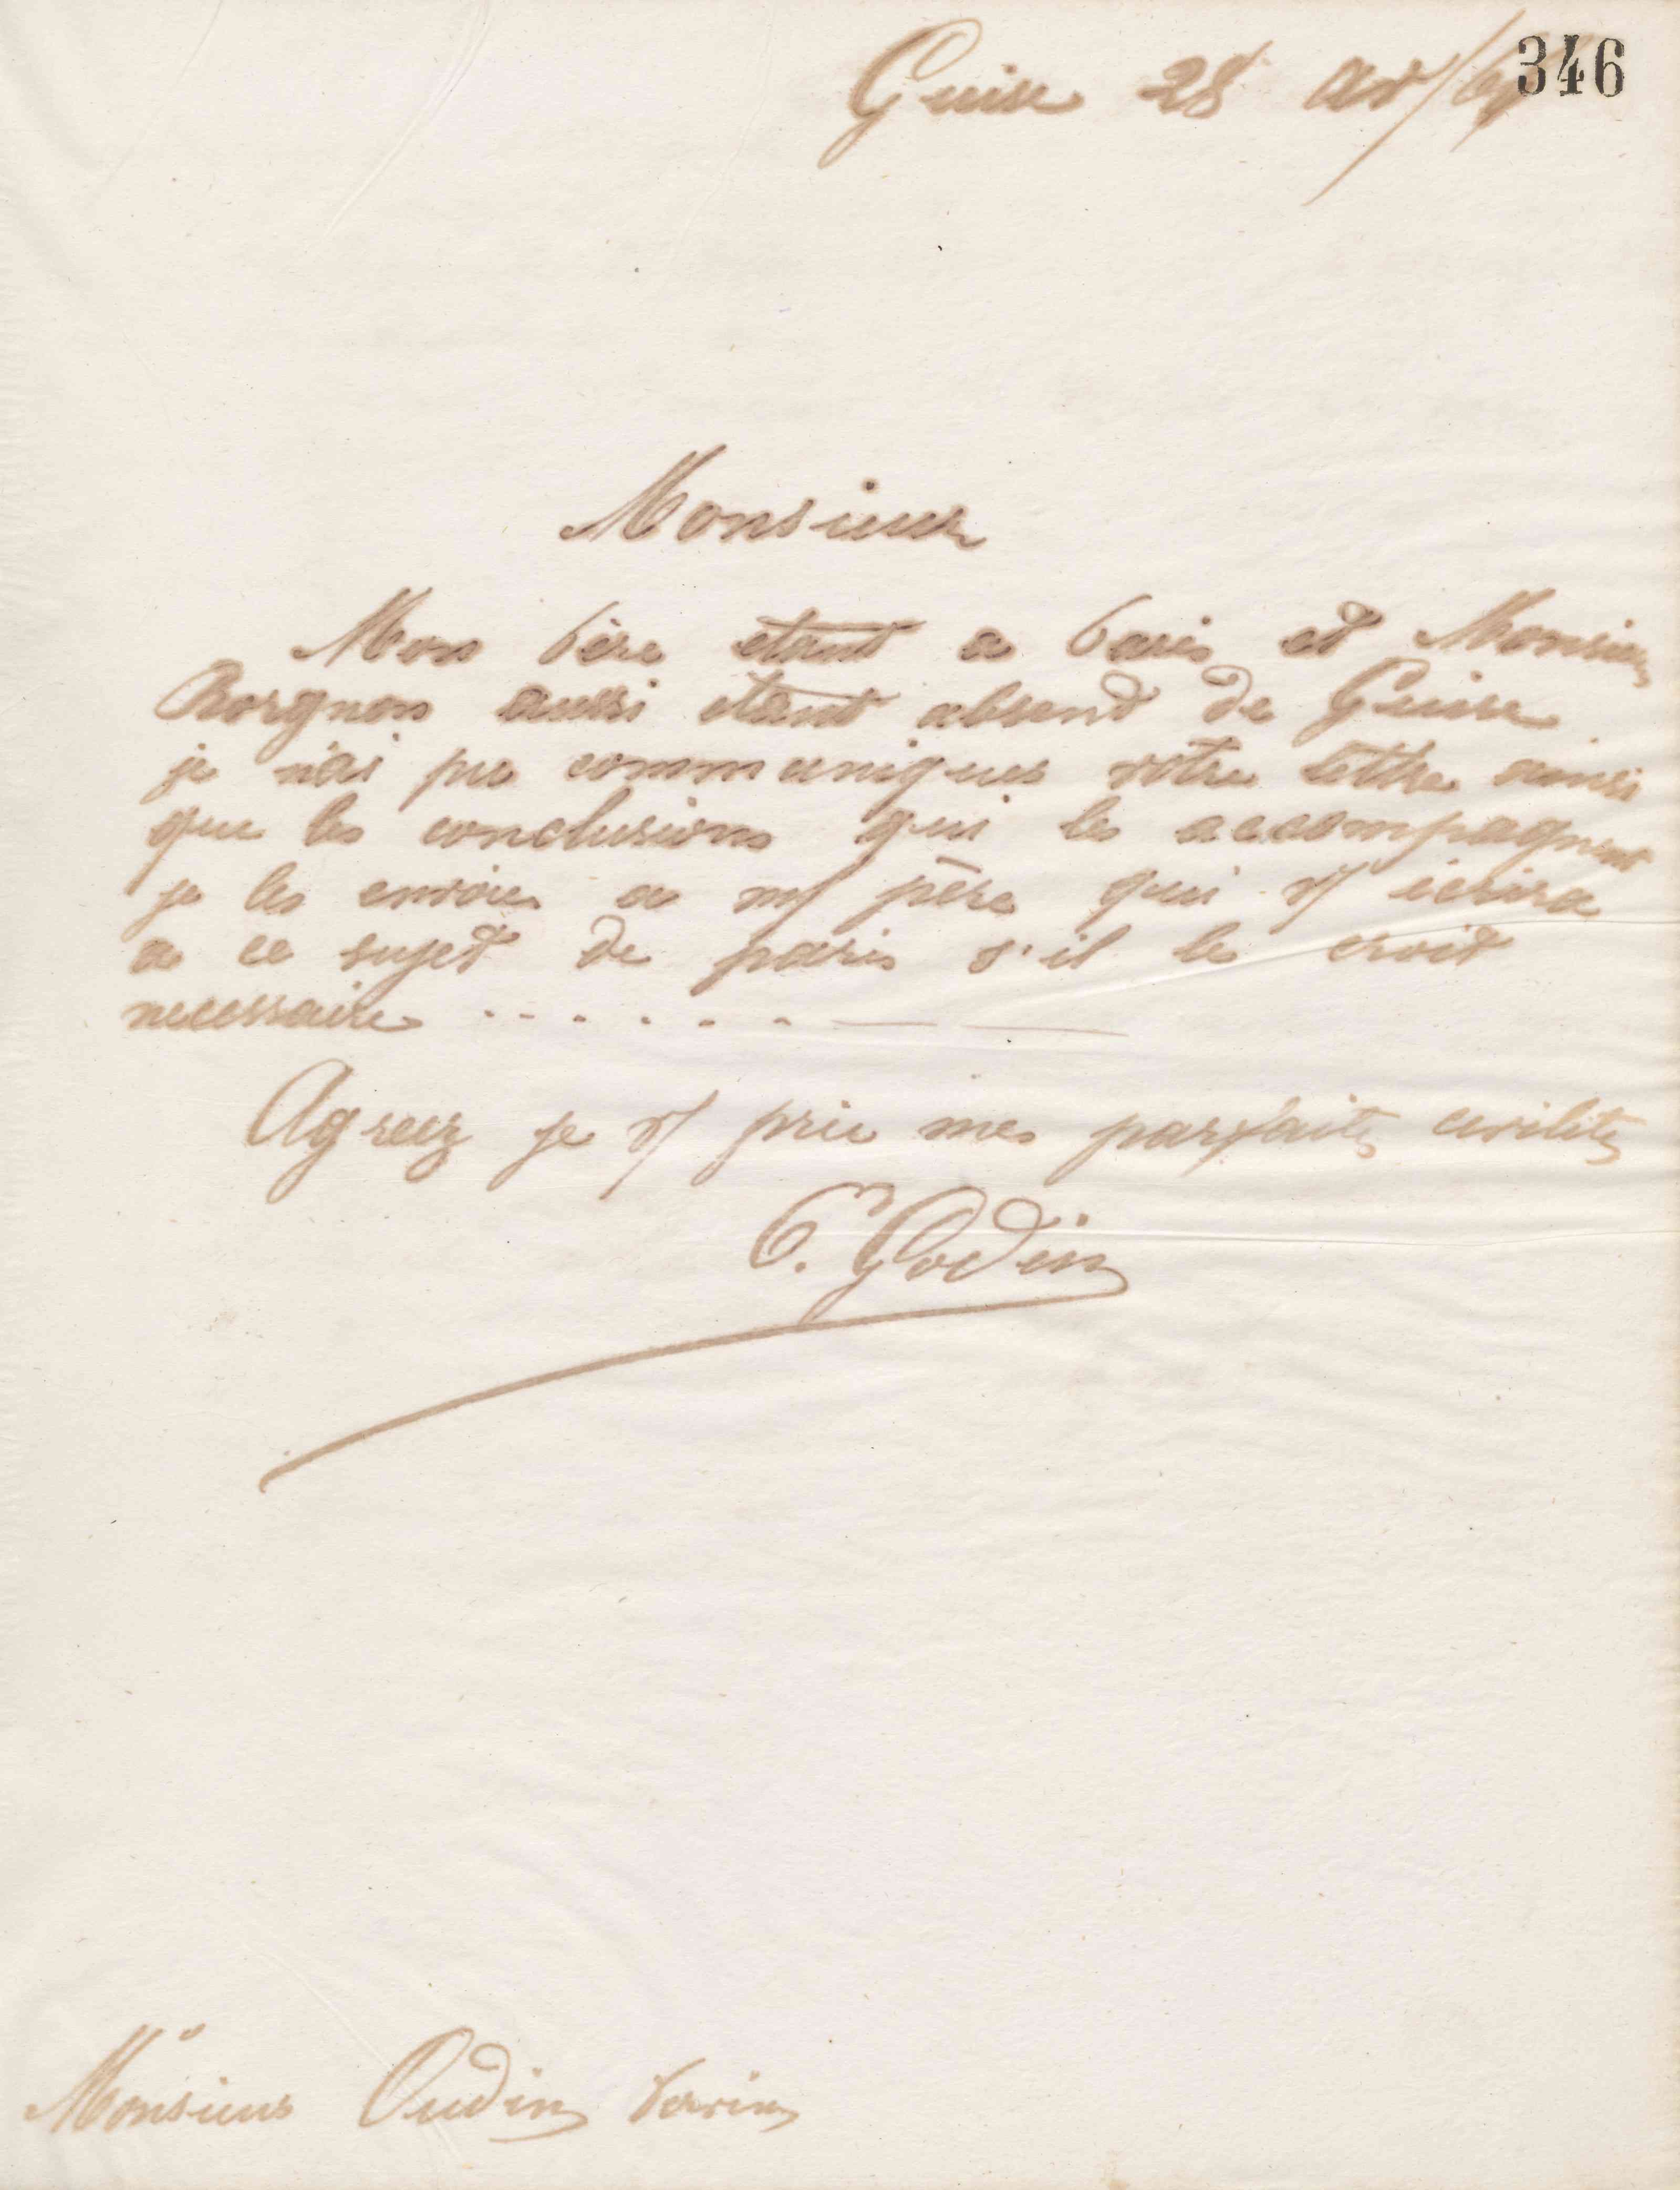 346
Guise 28 av/64
Monsieur
Mon Père etant a Paris et Monsieur
Borgnon aussi etant absend de Guise
je n'ai pu communiquer votre lettre ainsi
que les conclusions qui les accompagnent
je les envoie a m/ père qui v/ écrira
a ce sujet de paris s'il le croit
necessaire . . . . . . . — —
Agreez je v/ prie mes parfaites civilités
E. Godin
Monsieur Oudin